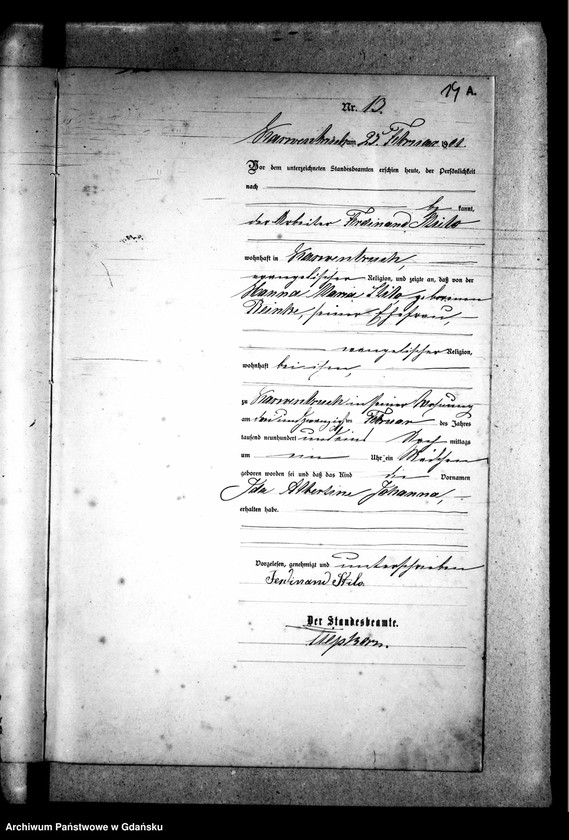 19 A.
Nr. 13.
Karwenbruch am 25. Februar 1901.
Vor dem unterzeichneten Standesbeamten erschien heute, der Persönlichkeit
nach
be kannt,
der Arbeiter Ferdinand Stilo
wohnhaft in Karwenbruch,
evangelischer Religion, und zeigte an, daß von der
Hanna Maria Stilo geborenen
Reinke, seiner Ehefrau,
evangelischer Religion,
wohnhaft bei ihm,
zu Karwenbruch in seiner Wohnung
am Februar des Jahres
tausend neunhundert und eins Nach mittags
um ein Uhr ein Mädchen
geboren worden sei und daß das Kind die Vornamen
Ida Albertine Johanna,
erhalten habe.
Vorgelesen, genehmigt und unterschrieben
Ferdinand Stilo.
Der Standesbeamte.
Archiwum Państwowe w Gdańsku